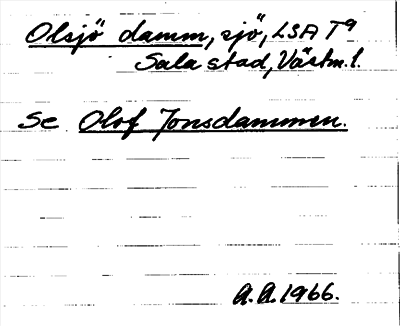 Olsjö damm, sjö, LSA T9
Sala stad, Västm.l.
se Olof Jonsdammen.
A.A. 1966.